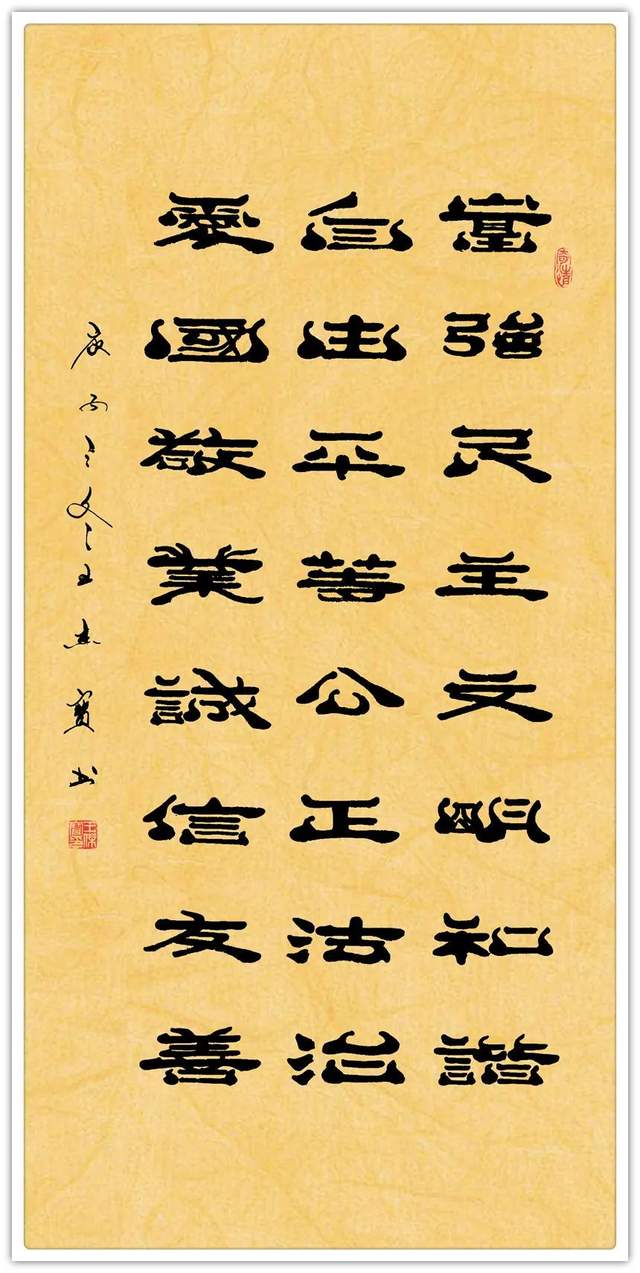 富強民主文明和諧
自由平等公正法治
愛國敬業誠信友善
之冬王杰寶书